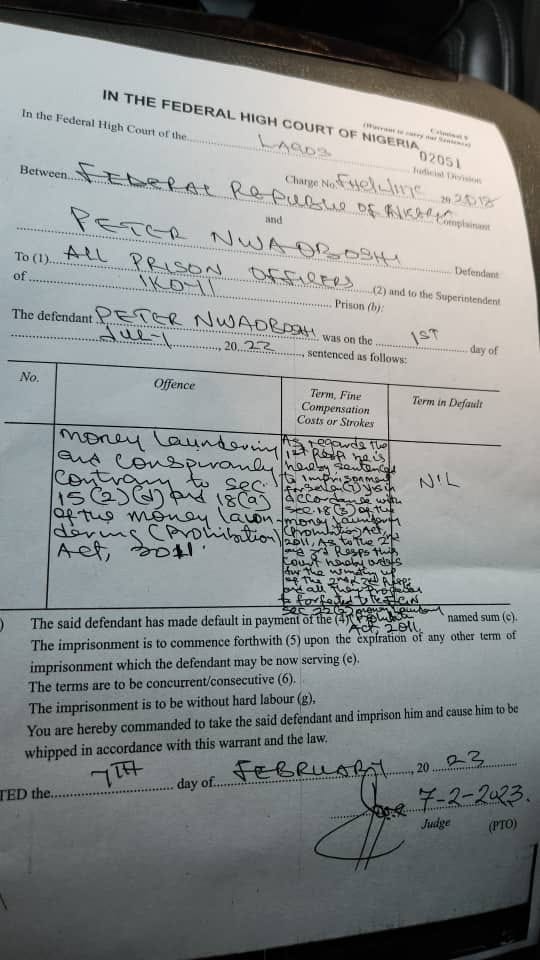 Criminal 9
(Warrant to carry out Sentence)
IN THE FEDERAL HIGH COURT OF NIGERIA
02051
In the Federal High Court of the LAGOS Judicial Division
Charge No. 20 2018
Between FEDERAL REPUBLIC OF Complainant
and
PETER NWAOBOSHI Defendant
To (1) ALL PRISON OFFICERS (2) and to the Superintendent
of IKOYI Prison (b):
The defendant PETER NWAOBOSHI was on the 1ST day of
JULY, 20 22, sentenced as follows:
No.
Offence
Term, Fine
Compensation
Costs or Strokes
Term in Default
money laundering
and
Contrary to Sec.
15(2)(d) and 18(a)
of the money laun-
dering (Prohibition)
Act, 2011.
As regards the
1st Resp he is
hereby sentenced
to imprisonment
for (7) yrs in
accordance with
sec. 18(3) of the
money laundering
(Prohibition) Act,
2011, As to the 2nd
and 3rd Resps this
Court hereby orders
for the winding up
of the 2nd & 3rd Resps
and all
to
Sec 22(2) money
Act, 2011
NIL
) The said defendant has made default in payment of the (4) named sum (c).
The imprisonment is to commence forthwith (5) upon the expiration of any other term of
imprisonment which the defendant may be now serving (e).
The terms are to be concurrent/consecutive (6).
The imprisonment is to be without hard labour (g),
You are hereby commanded to take the said defendant and imprison him and cause him to be
whipped in accordance with this warrant and the law.
TED the 7TH day of FEBRUARY, 20 23
7-2-2023.
Judge (PTO)